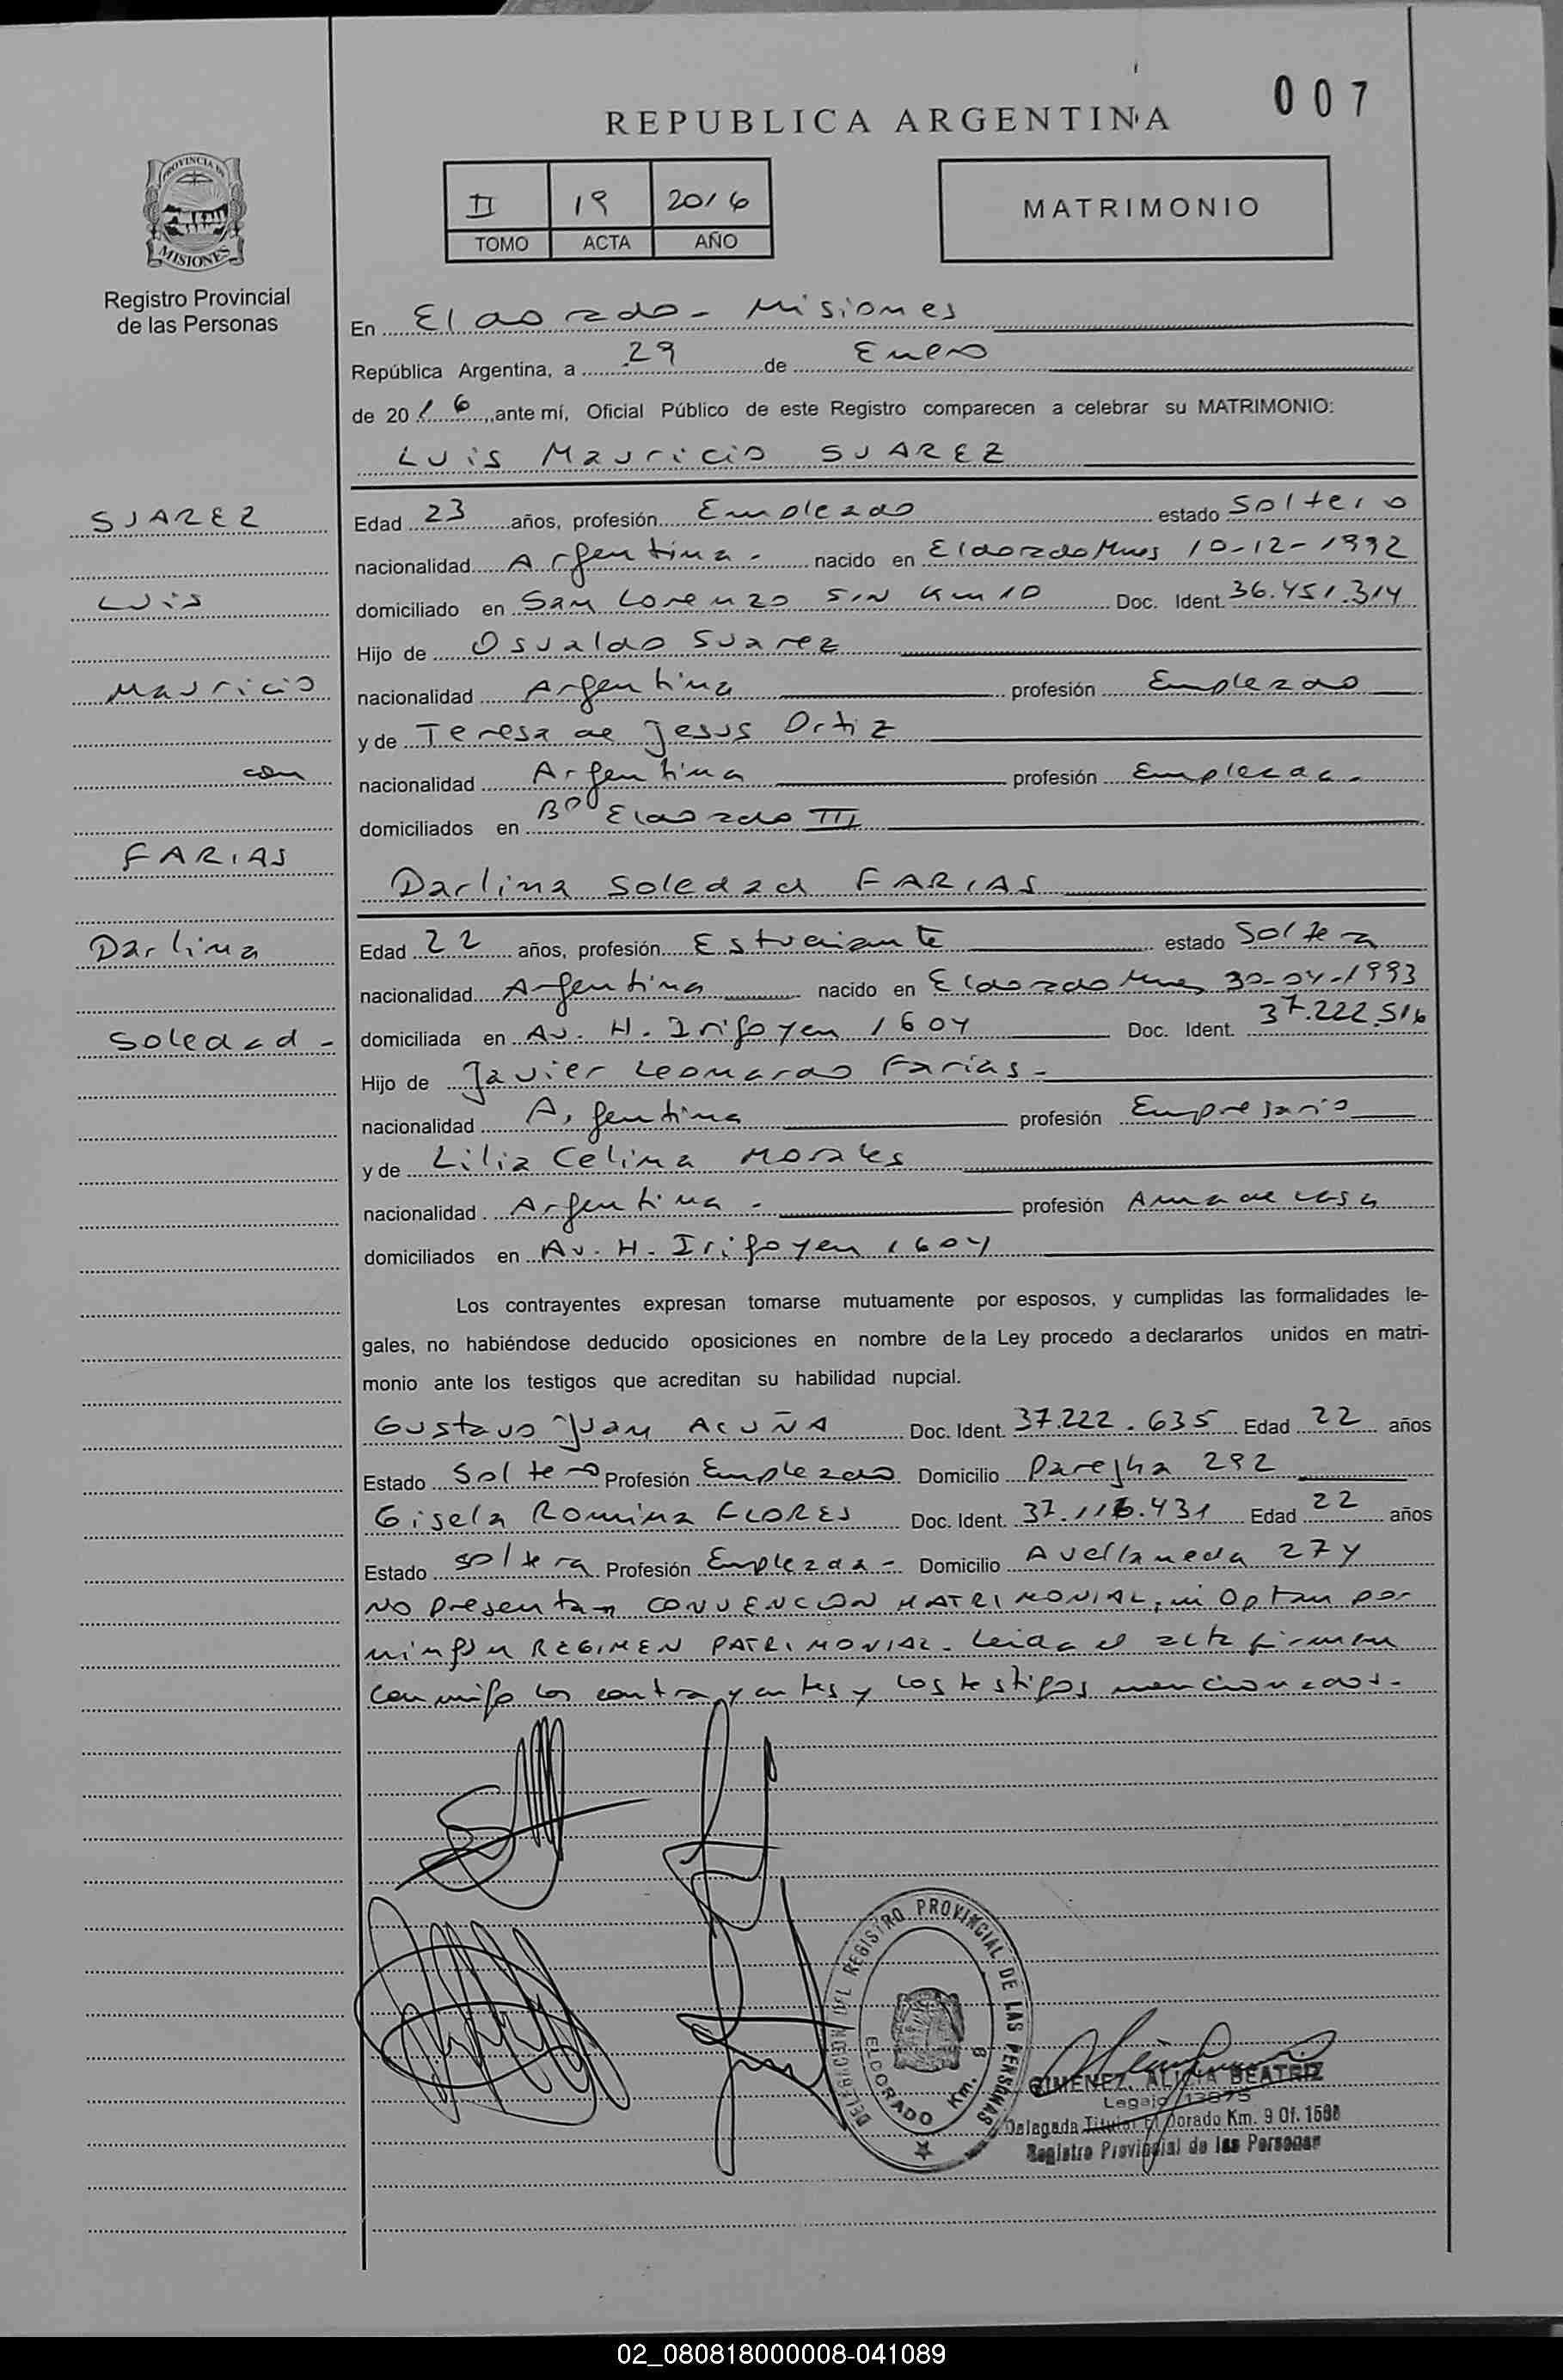 007
REPUBLICA ARGENTINA
PROVINCIA DE
MISIONES
II 19 2016
TOMO ACTA AÑO
MATRIMONIO
Registro Provincial
de las Personas
En Eldorado - Misiones
República Argentina, a 29 de Enero
de 2016, ante mí, Oficial Público de este Registro comparecen a celebrar su MATRIMONIO:
Luis Mauricio SUAREZ
SUAREZ
Luis
Mauricio
con
FARIAS
Darlina
Soledad -
Edad 23 años, profesión Empleado estado Soltero
nacionalidad Argentina - nacido en Eldorado Mnes 10-12-1992
domiciliado en San Lorenzo S/N Km 10 Doc. Ident. 36.451.314
Hijo de Osvaldo Suarez
nacionalidad Argentina profesión Empleado
y de Teresa de Jesus Ortiz
nacionalidad Argentina profesión Empleada -
domiciliados en Bº Eldorado III
Darlina Soledad FARIAS
Edad 22 años, profesión Estudiante estado Soltera
nacionalidad Argentina nacido en Eldorado Mnes 30-04-1993
domiciliada en Av. H. Irigoyen 1604 Doc. Ident. 37.222.516
Hijo de Javier Leonardo Farías -
nacionalidad Argentina profesión Empresario
y de Lilia Celina Morales
nacionalidad Argentina - profesión Ama de casa
domiciliados en Av. H. Irigoyen 1604
Los contrayentes expresan tomarse mutuamente por esposos, y cumplidas las formalidades le-
gales, no habiéndose deducido oposiciones en nombre de la Ley procedo a declararlos unidos en matri-
monio ante los testigos que acreditan su habilidad nupcial.
Gustavo Juan ACUÑA Doc. Ident. 37.222.635 Edad 22 años
Estado Soltero Profesión Empleado Domicilio Parejha 292
Gisela Romina FLORES Doc. Ident. 37.116.431 Edad 22 años
Estado soltera Profesión Empleada - Domicilio Avellaneda 274
No presentan CONVENCION MATRIMONIAL, ni Optan por
ningún REGIMEN PATRIMONIAL. Leida el acta firman
conmigo los contrayentes y los testigos mencionados -
DELEGACION DEL REGISTRO PROVINCIAL DE LAS PERSONAS
ELDORADO Km. 9
GIMENEZ, ALICIA BEATRIZ
Legajo 13975
Delegada Titular El Dorado Km. 9 Of. 1588
Registro Provincial de las Personas
02_080818000008-041089